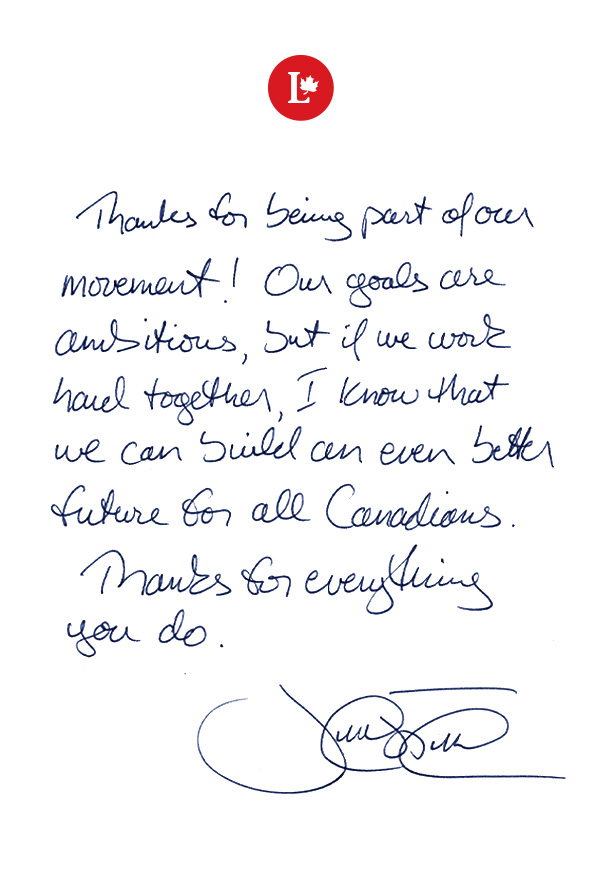 L
Thanks for being part of our
movement! Our goals are
ambitious, but if we work
hard together, I know that
we can build an even better
future for all Canadians.
Thanks for everything
you do.